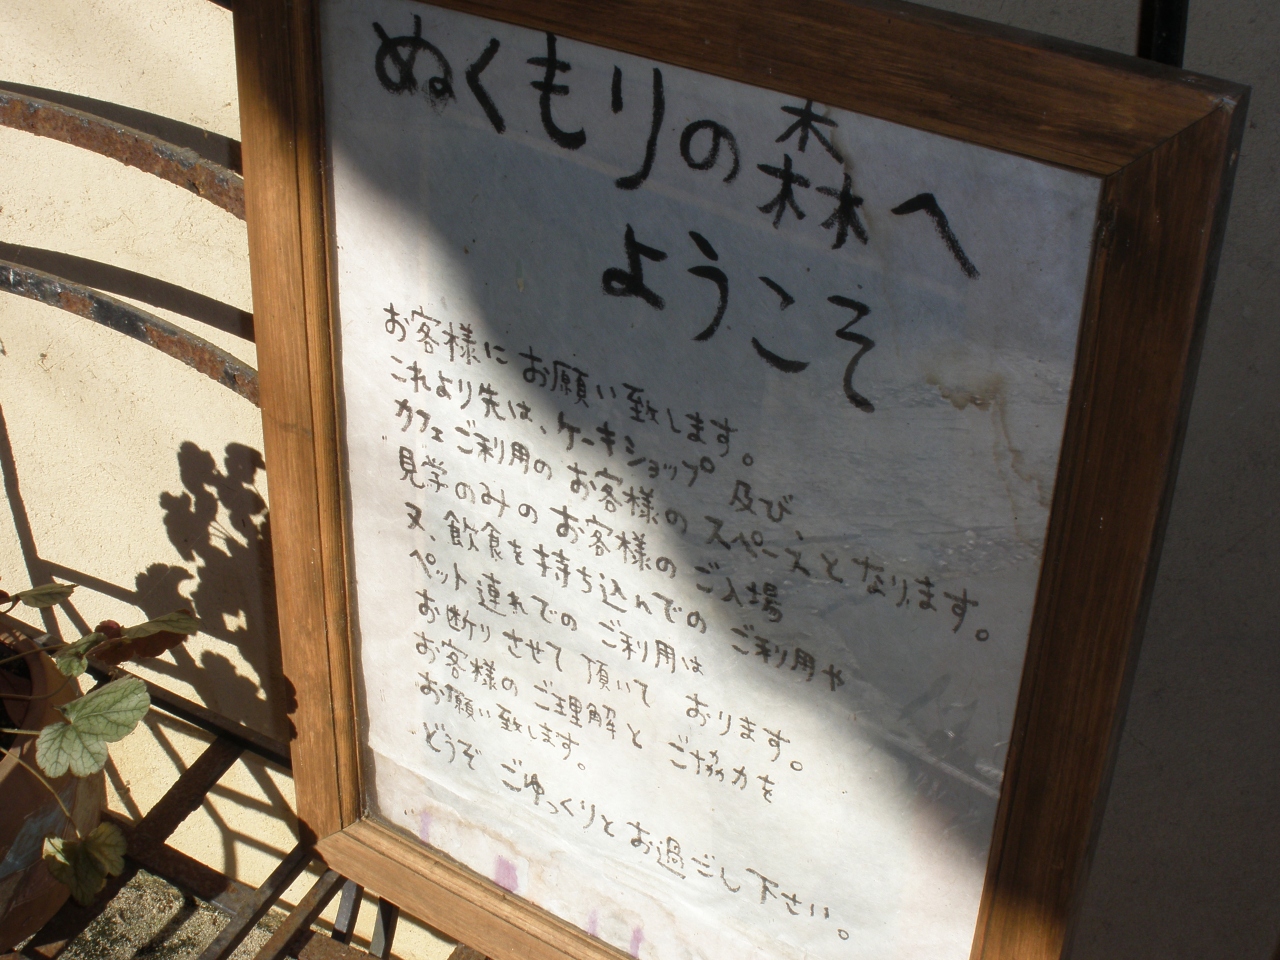 ぬくもりの森へ
ようこそ
お客様にお願い致します。
これより先は、ケーキショップ 及び、
カフェご利用のお客様のスペースとなります。
見学のみのお客様のご入場
又、飲食を持ち込んでのご利用や
ペット連れでのご利用は
お断りさせて頂いて おります。
お客様のご理解とご協力を
お願い致します。
どうぞ ごゆっくりとお過ごし下さい。